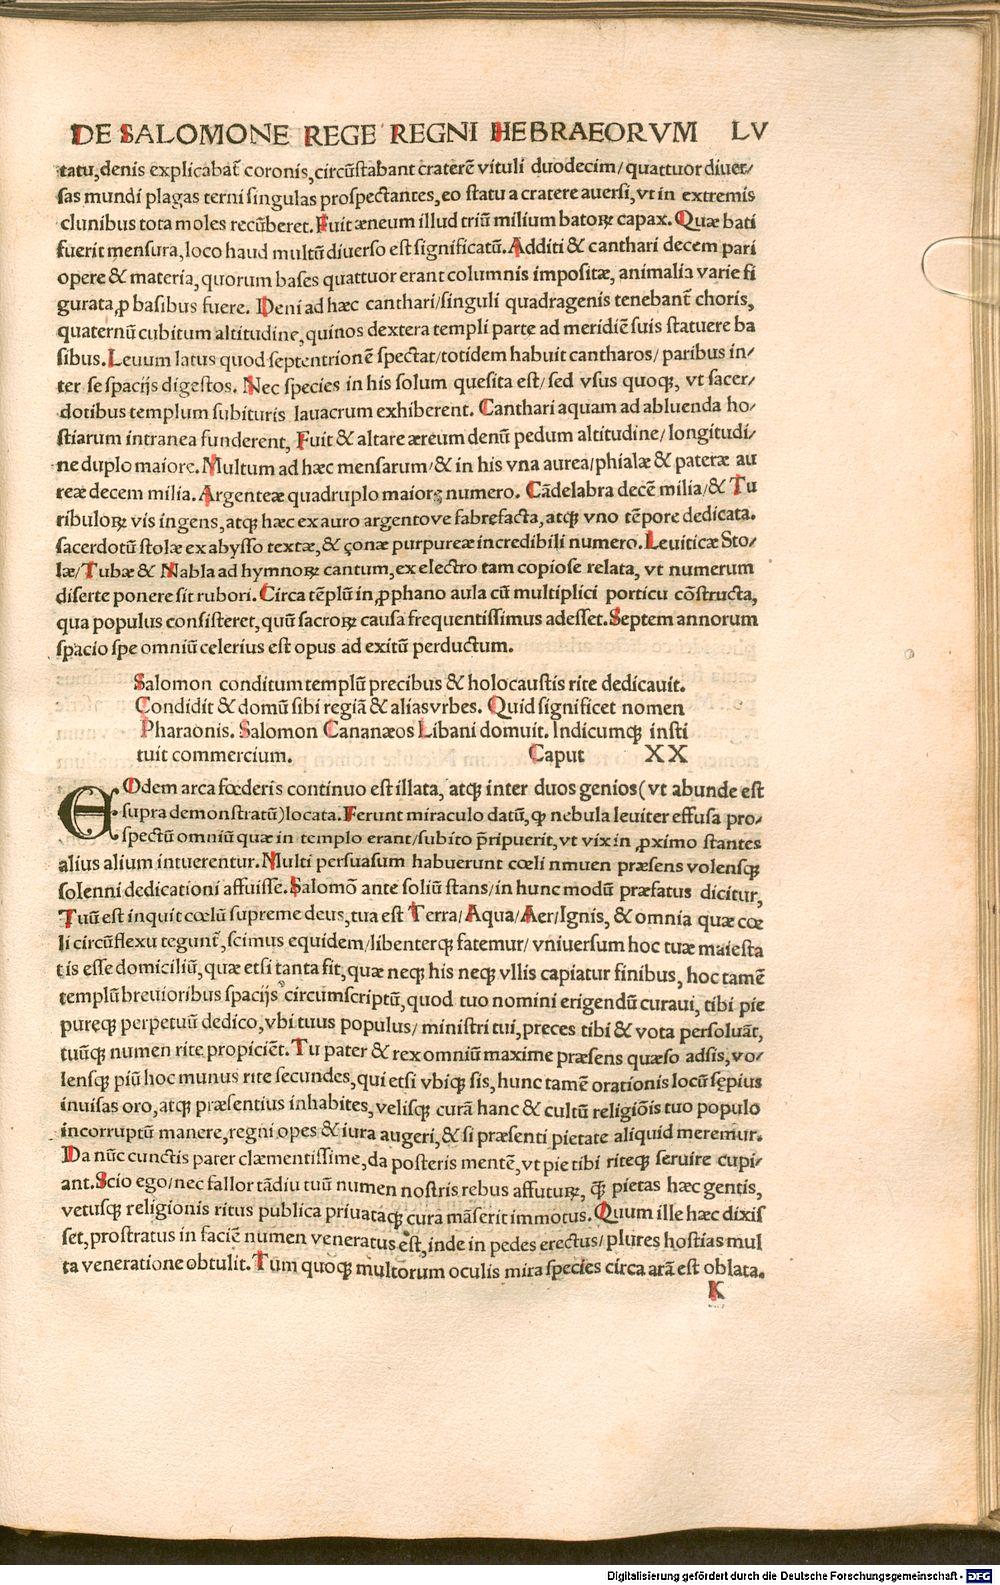 DE SALOMONE REGE REGNI HEBRAEORVM LV
tatu, denis explicabat̃ coronis, circũſtabant craterẽ vituli duodecim/ quattuor diuer/
ſas mundi plagas terni ſingulas proſpectantes, eo ſtatu a cratere auerſi, vt in extremis
clunibus tota moles recũberet. Fuit æneum illud triũ milium batoꝝ capax. Quæ bati
fuerit menſura, loco haud multũ diuerſo eſt ſignificatũ. Additi & canthari decem pari
opere & materia, quorum baſes quattuor erant columnis impoſitæ, animalia varie fi
gurata, ꝓ baſibus fuere. Deni ad hæc canthari/ ſinguli quadragenis tenebant̃ choris,
quaternũ cubitum altitudine, quinos dextera templi parte ad meridiẽ ſuis ſtatuere ba
ſibus. Leuum latus quod ſeptentrionẽ ſpectat/ totidem habuit cantharos/ paribus in/
ter ſe spacijs digeſtos. Nec ſpecies in his ſolum queſita eſt/ ſed vſus quoqꝫ, vt ſacer/
dotibus templum ſubituris lauacrum exhiberent. Canthari aquam ad abluenda ho/
ſtiarum intranea funderent, Fuit & altare æreum denũ pedum altitudine/ longitudi/
ne duplo maiore. Multum ad hæc menſarum/ & in his vna aurea/ phialæ & pateræ au
reæ decem milia. Argenteæ quadruplo maiorꝫ numero. Cãdelabra decẽ milia/ & Tu
ribuloꝝ vis ingens, atqꝫ hæc ex auro argentove fabrefacta, atqꝫ vno tẽpore dedicata.
ſacerdotũ ſtolæ ex abyſſo textæ, & çonæ purpureæ incredibili numero. Leuiticæ Sto/
læ/ Tubæ & Nabla ad hymnoꝝ cantum, ex electro tam copioſe relata, vt numerum
diſerte ponere ſit rubori. Circa tẽplũ in ꝓphano aula cũ multiplici porticu cõſtructa,
qua populus conſiſteret, quũ ſacroꝝ cauſa frequentiſſimus adeſſet. Septem annorum
ſpacio ſpe omniũ celerius eſt opus ad exitũ perductum.
Salomon conditum templũ precibus & holocauſtis rite dedicauit.
Condidit & domũ ſibi regiã & alias vrbes. Quid ſignificet nomen
Pharaonis. Salomon Cananæos Libani domuit. Indicumqꝫ inſti
tuit commercium. Caput XX
EOdem arca fœderis continuo eſt illata, atqꝫ inter duos genios (vt abunde eſt
ſupra demonſtratũ) locata. Ferunt miraculo datũ, ꝙ nebula leuiter effuſa pro/
ſpectũ omniũ quæ in templo erant/ ſubito p̃ripuerit, vt vix in ꝓximo ſtantes
alius alium intuerentur. Multi perſuaſum habuerunt cœli nmuen præſens volenſqꝫ
ſolenni dedicationi affuiſſe. Salomõ ante ſoliũ ſtans/ in hunc modũ præfatus dicitur,
Tuũ eſt inquit cœlũ ſupreme deus, tua eſt Terra/ Aqua/ Aer/ Ignis, & omnia quæ cœ
li circũflexu tegunt̃, ſcimus equidem/ libenterqꝫ fatemur/ vniuerſum hoc tuæ maieſta
tis eſſe domiciliũ, quæ etſi tanta ſit, quæ neqꝫ his neqꝫ vllis capiatur finibus, hoc tamẽ
templũ breuioribus spacijs circumſcriptũ, quod tuo nomini erigendũ curaui, tibi pie
pureqꝫ perpetuũ dedico, vbi tuus populus/ miniſtri tui, preces tibi & vota perſoluãt,
tuũqꝫ numen rite propiciẽt. Tu pater & rex omniũ maxime præſens quæſo adſis, vo/
lenſqꝫ piũ hoc munus rite ſecundes, qui etſi vbiqꝫ ſis, hunc tamẽ orationis locũ ſępius
inuiſas oro, atqꝫ præſentius inhabites, velisqꝫ curã hanc & cultũ religiõis tuo populo
incorruptũ manere, regni opes & iura augeri, & ſi præſenti pietate aliquid meremur.
Da nũc cunctis pater clæmentiſſime, da poſteris mentẽ, vt pie tibi riteqꝫ ſeruire cupi/
ant. Scio ego/ nec fallor tãdiu tuũ numen noſtris rebus affuturꝝ, ꝗ̃ pietas hæc gentis,
vetuſqꝫ religionis ritus publica priuataqꝫ cura mãſerit immotus. Quum ille hæc dixiſ
ſet, proſtratus in faciẽ numen veneratus eſt, inde in pedes erectus/ plures hoſtias mul
ta veneratione obtulit. Tum quoqꝫ multorum oculis mira ſpecies circa arã eſt oblata.
K
Digitalisierung gefördert durch die Deutsche Forschungsgemeinschaft - DFG